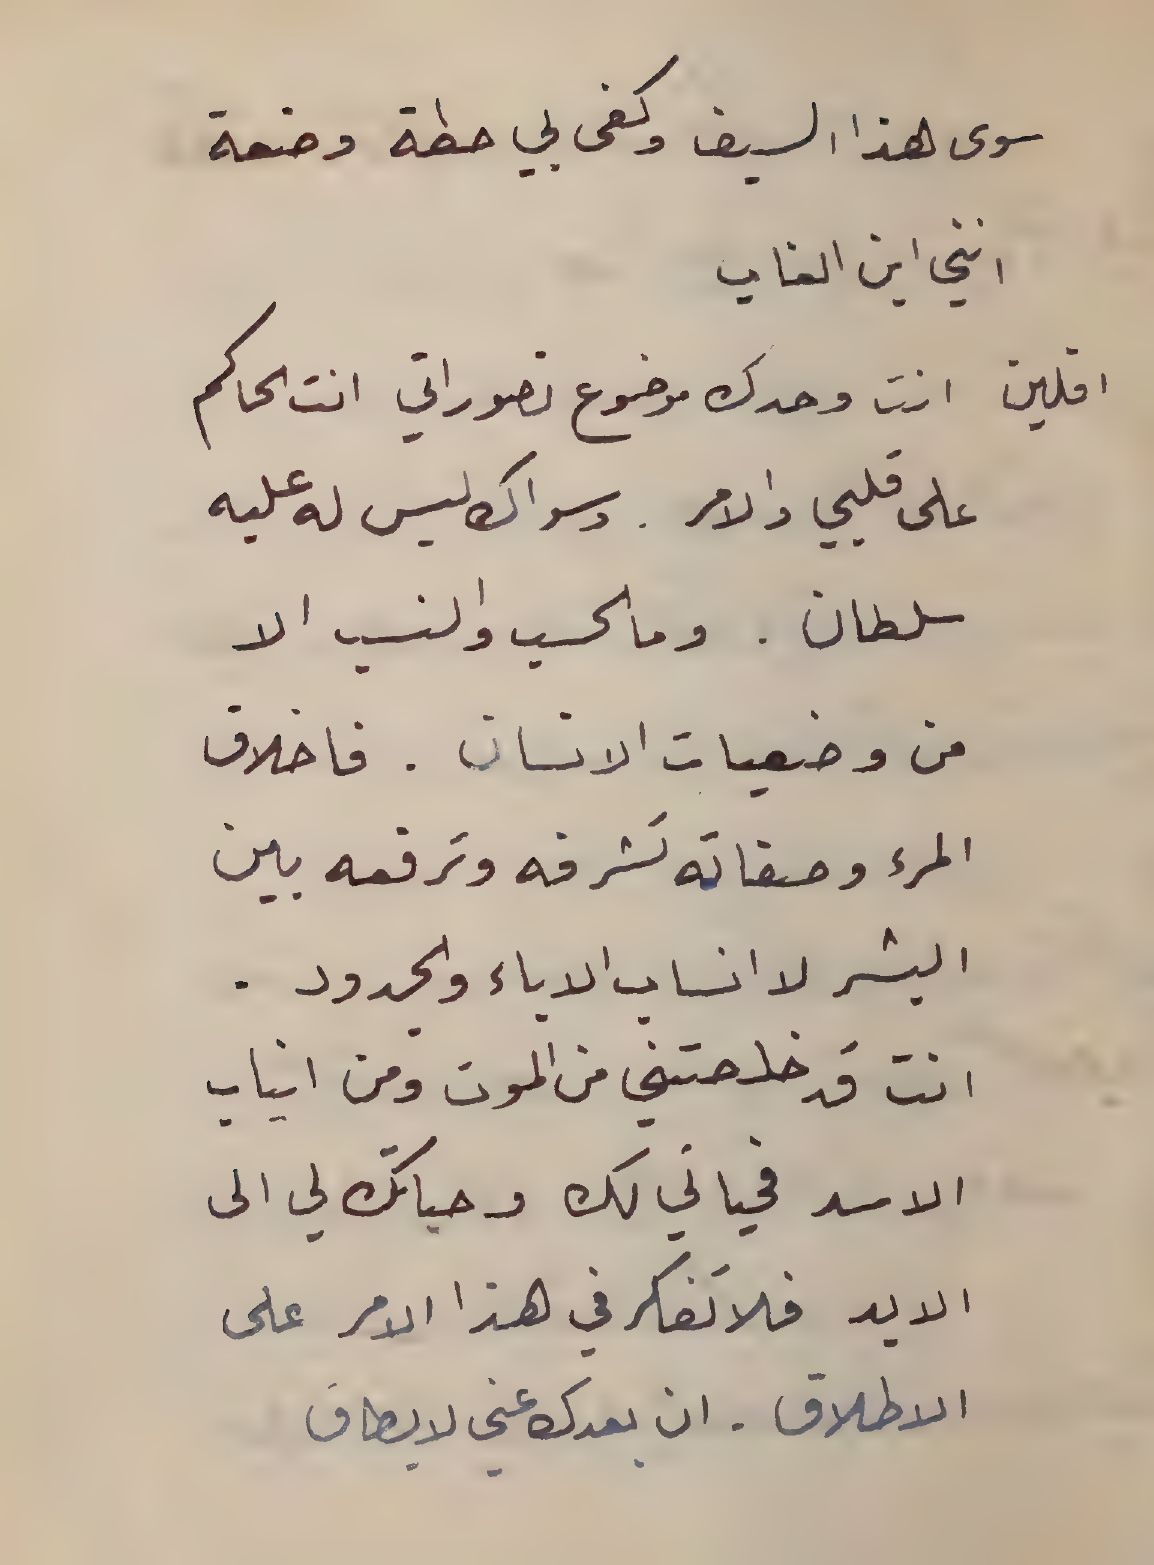 سوى هذا السيف وكفى بي حطة وضعة
انني ابن الغاب
افلين انت وحدك موضوع تصوراتي انت الحاكم
على قلبي والامر . وسواك ليس له عليه
سلطان . وما الحسب والنسب الا
من وضعيات الانسان . فاخلاق
المرء وصفاته تشرفه وترفعه بين
البشر لا انساب الاباء والجدود .
انت قد خلصتني من الموت ومن انياب
الاسد فحياتي لك وحياتك لي الى
الابد فلا تفكر في هذا الامر على
الاطلاق . ان بعدك عني لا يطاق